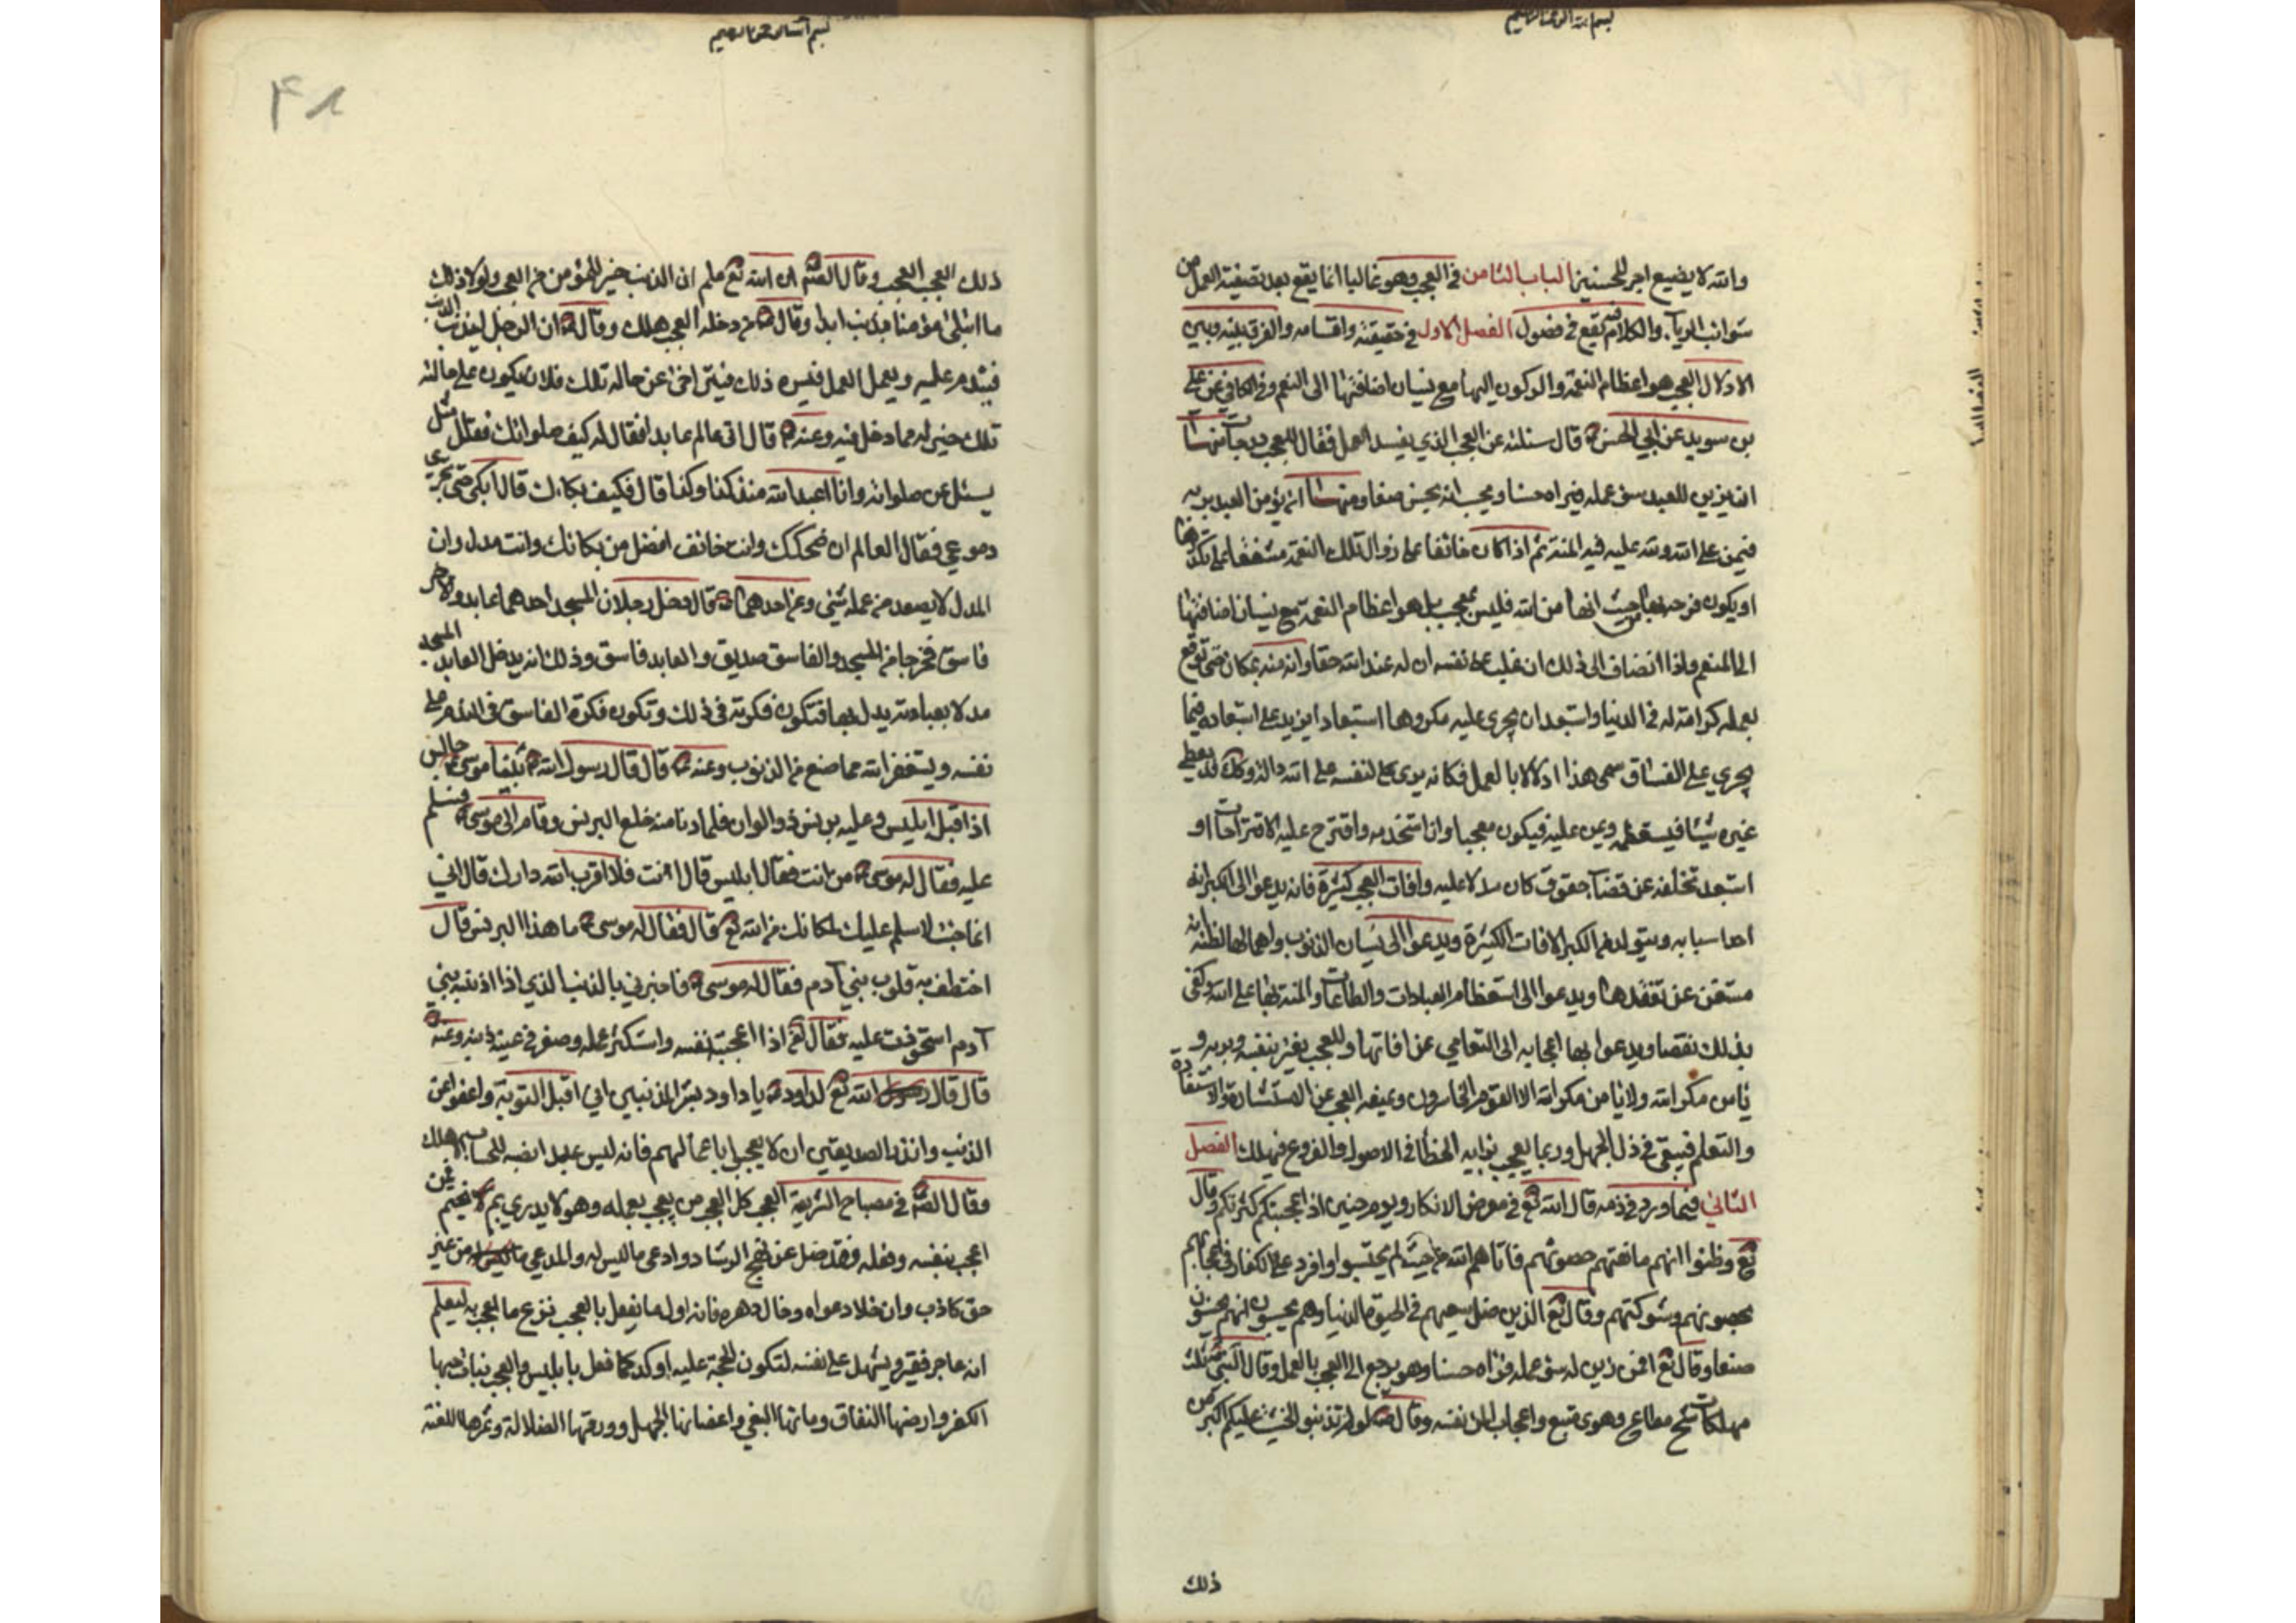 بسم الله الرحمن الرحيم
والله لا يضيع اجر المحسنين الباب الثامن في العجب وهو غالبا انما يقع بعد تصفية العمل من
شوائب الريآء والكلام فيه يقع في فصول الفصل الاول في حقيقته واقسامه والفرق بينه وبين
الادلال العجب هو اعظام النعمة والركون اليها مع نسيان اضافتها الى المنعم وفي الكافي عن علي
بن سويد عن ابي الحسن ع قال سئلته عن العجب الذي يفسد العمل فقال للعجب درجات منها
ان يزين للعبد سوء عمله فيراه حسنا ويحسب انه يحسن صنعا ومنها ان يؤمن العبد بربه
فيمن على الله ولله عليه فيه المنة ثم اذا كان خائفا على زوال تلك النعمة مشفقا على تكدرها
او يكون فرحه بها من حيث انها من الله فليس بمعجب بل هو اعظام النعمة مع نسيان اضافتها
الى المنعم واذا انضاف الى ذلك ان غلب على نفسه ان له عند الله حقا وانه منه بمكان حتى توقع
بعمله كرامة له في الدنيا واستبعد ان يجري عليه مكروها استبعادا يزيد على استبعاده فيما
يجري على الفساق سمى هذا ادلالا بالعمل فكانه يرى لنفسه على الله دالة وكذلك قد يعطي
غيره شيئا فيستعظمه ويمن عليه فيكون معجبا وان استخدمه واقترح عليه الاقتراحات او
استبعد تخلفه عن قضآء حقوقه كان مدلا عليه وافات العجب كثيرة فانه يدعوا الى الكبر لانه
احد اسبابه ويتولد من الكبر الافات الكثيرة ويدعوا الى نسيان الذنوب واهمالها لظنه انه
مستغن عن تفقدها ويدعوا الى استعظام العبادات والطاعات والمنة بها على الله وكفى
بذلك نقصا ويدعوا بها اعجابه الى التعامي عن افاتها والمعجب يغتر بنفسه وبربه و
يأمن مكر الله ولا يأمن مكر الله الا القوم الخاسرون ويمنعه العجب عن الاستشارة والاستفادة
والتعلم فيبقى في ذل الجهل وربما يعجب برايه الخطأ في الاصول والفروع فيهلك الفصل
الثاني فيما ورد في ذمه قال الله تع في معرض الانكار ويوم حنين اذ اعجبتكم كثرتكم وقال
تع وظنوا انهم مانعتهم حصونهم فاتاهم الله من حيث لم يحتسبوا وافرد على الكفار في اعجابهم
بحصونهم وشوكتهم وقال تع الذين ضل سعيهم في الحيوة الدنيا وهم يحسبون انهم يحسنون
صنعا وقال تع افمن زين له سوء عمله فرآه حسنا وهو يرجع الى العجب بالعمل وقال النبي ص ثلث
مهلكات شح مطاع وهوى متبع واعجاب المرء نفسه وقال ص لو لم تذنبوا لخشيت عليكم اكبر من
ذلك
بسم الله الرحمن الرحيم
۴۸
ذلك العجب العجب وقال الصم ان الله تع علم ان الذنب خير للمؤمن من العجب ولولا ذلك
ما ابتلى مؤمنا بذنب ابدا وقال ع من دخله العجب هلك وقال ع ان الرجل ليذنب الذنب
فيندم عليه ويعمل العمل فيسره ذلك فيتراخى عن حاله تلك فلان يكون على حاله
تلك خير له مما دخل فيه وعنه ع قال اتى عالم عابدا فقال له كيف صلوتك فقال مثلي
يسئل عن صلوته وانا اعبد الله منذ كذا وكذا قال فكيف بكاؤك قال ابكى حتى تجري
دموعي فقال العالم ان ضحكك وانت خائف افضل من بكائك وانت مدل وان
المدل لا يصعد من عمله شئ وعن احدهما ع قال دخل رجلان المسجد احدهما عابد والاخر
فاسق فخرجا من المسجد والفاسق صديق والعابد فاسق وذلك انه يدخل العابد المسجد
مدلا بعبادته يدل بها فتكون فكرته في ذلك وتكون فكرة الفاسق في الندم على
نفسه ويستغفر الله مما صنع من الذنوب وعنه ع قال قال رسول الله ص بينما موسى ع جالس
اذ اقبل ابليس وعليه برنس ذو الوان فلما دنا منه خلع البرنس وقام الى موسى ع فسلم
عليه فقال له موسى ع من انت فقال ابليس قال انت فلا اقرب الله دارك قال اني
انما جئت لاسلم عليك لمكانك من الله تع قال فقال له موسى ع ما هذا البرنس قال
اختطف به قلوب بني آدم فقال له موسى ع فاخبرني بالذنب الذي اذا اذنبه بني
آدم استحوذت عليه فقال لع اذا اعجبته نفسه واستكثر عمله وصغر في عينه ذنبه وعنه ع
قال قال الله تع لداود ع يا داود بشر المذنبين اني اقبل التوبة واعفو عن
الذنب وانذر الصديقين ان لا يعجبوا باعمالهم فانه ليس عبد انصبه للحساب الا هلك
وقال الصم في مصباح الشريعة العجب كل العجب من يعجب بعمله وهو لا يدري بم يختم فمن
اعجب بنفسه وفعله وقد ضل عن نهج الرشاد وادعى ما ليس له والمدعي من غير
حق كاذب وان خفا دعواه وطال دهره فانه اول ما يفعل بالعجب نزع ما اعجب به ليعلم
انه عاجز فقير ويشهد على نفسه لتكون الحجة عليه اوكد كما فعل بابليس والعجب نبات حبها
الكفر وارضها النفاق ومائها البغي واغصانها الجهل وورقها الضلالة وثمرها اللعنة